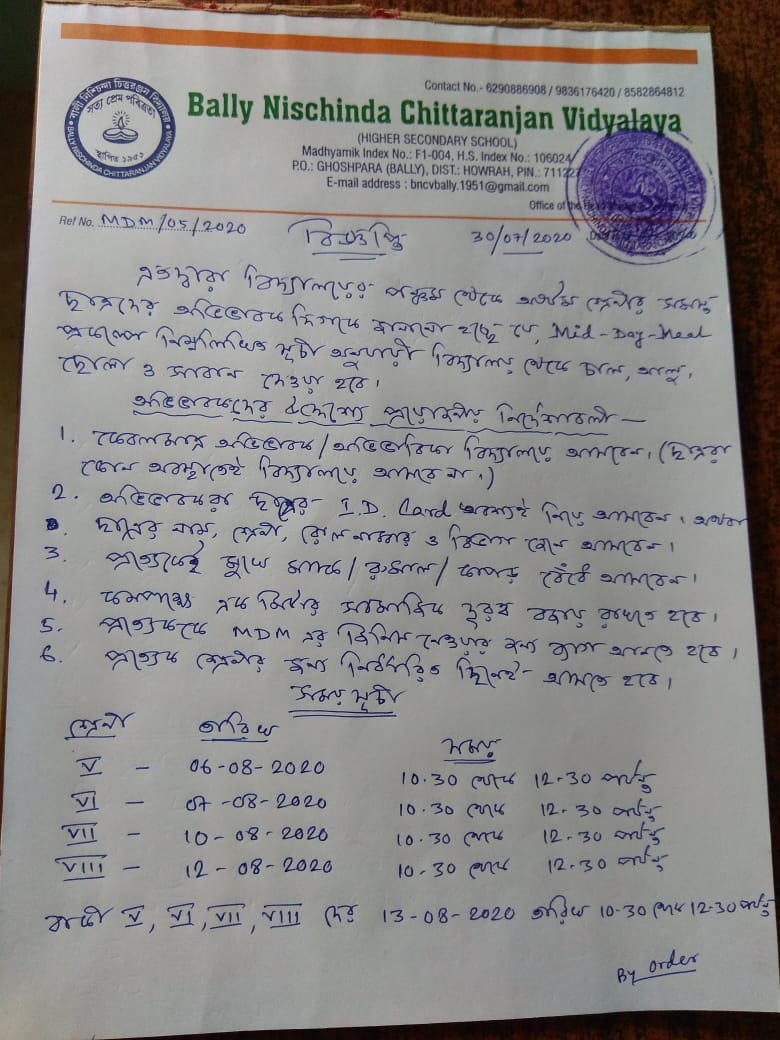 Contact No.- 6290886908 / 9836176420 / 8582864812
Bally Nischinda Chittaranjan Vidyalaya
(HIGHER SECONDARY SCHOOL)
Madhyamik Index No.: F1-004, H.S. Index No.: 106024
P.O.: GHOSHPARA (BALLY), DIST.: HOWRAH, PIN.: 711227
E-mail address : bncvbally.1951@gmail.com
বালী নিশ্চিন্দা চিত্তরঞ্জন বিদ্যালয়
সত্য প্রেম পবিত্রতা
স্থাপিত ১৯৫১
BALLY NISCHINDA CHITTARANJAN VIDYALAYA
Office of the
Ref No. MDM/05/2020
বিজ্ঞপ্তি
30/07/2020
এতদ্বারা বিদ্যালয়ের পঞ্চম থেকে অষ্টম শ্রেণীর সমস্ত
ছাত্রদের অভিভাবকদিগকে জানানো হচ্ছে যে, Mid-Day-Meal
প্রকল্পে নিম্নলিখিত সূচী অনুযায়ী বিদ্যালয় থেকে চাল, আলু,
ছোলা ও সাবান দেওয়া হবে।
অভিভাবকদের উদ্দেশ্যে প্রয়োজনীয় নির্দেশাবলী —
1. কেবলমাত্র অভিভাবক/অভিভাবিকা বিদ্যালয়ে আসবেন। (ছাত্ররা
কোন অবস্থাতেই বিদ্যালয়ে আসবে না।)
2. অভিভাবকরা ছাত্রের I.D. Card অবশ্যই নিয়ে আসবেন। অথবা
ছাত্রের নাম, শ্রেণী, রোল নাম্বার ও বিভাগ জেনে আসবেন।
3. প্রত্যেকেই মুখে মাস্ক/রুমাল/কাপড় বেঁধে আসবেন।
4. কমপক্ষে এক মিটার সামাজিক দূরত্ব বজায় রাখতে হবে।
5. প্রত্যেককে MDM এর জিনিস নেওয়ার জন্য ব্যাগ আনতে হবে।
6. প্রত্যেক শ্রেণীর জন্য নির্ধারিত দিনেই আসতে হবে।
সময় সূচী
শ্রেণী তারিখ সময়
V – 06-08-2020 10.30 থেকে 12-30 পর্যন্ত
VI – 07-08-2020 10.30 থেকে 12-30 পর্যন্ত
VII – 10-08-2020 10.30 থেকে 12-30 পর্যন্ত
VIII – 12-08-2020 10.30 থেকে 12-30 পর্যন্ত
বাকী V, VI, VII, VIII দের 13-08-2020 তারিখ 10-30 থেকে 12-30 পর্যন্ত
By order